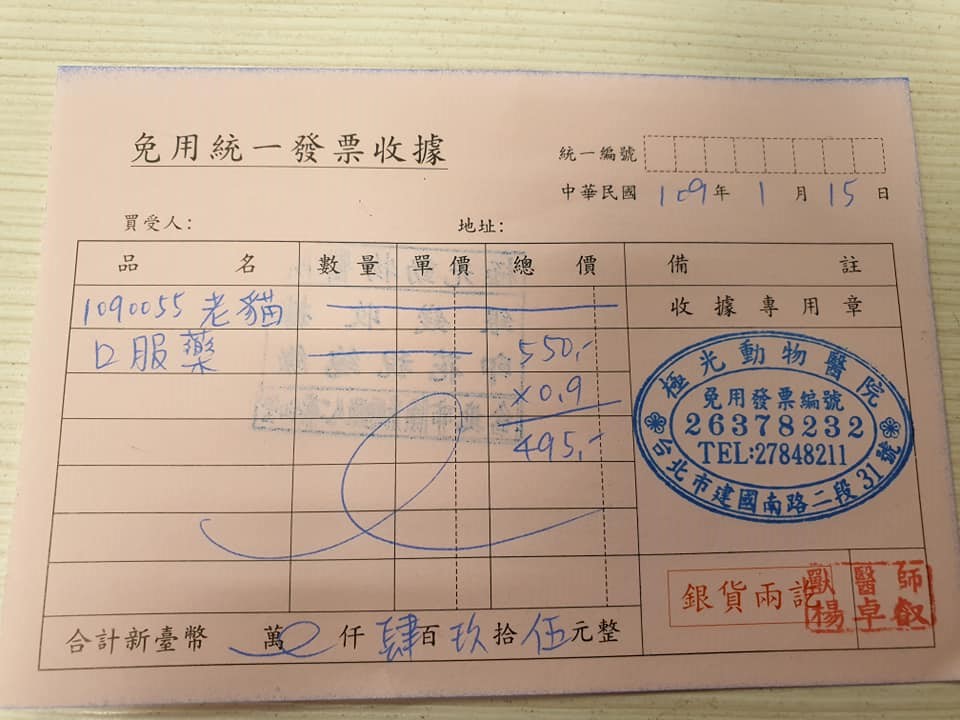 免用統一發票收據
統一編號
中華民國 109年 1 月 15 日
買受人: 地址:
品名 數量 單價 總價 備註
1090055 老貓 收據專用章
口服藥 550.-
×0.9
495.-
極光動物醫院
免用發票編號
26378232
TEL:27848211
台北市建國南路二段31號
銀貨兩訖
獸醫師
楊卓叡
合計新臺幣 萬 仟 肆 百 玖 拾 伍 元整